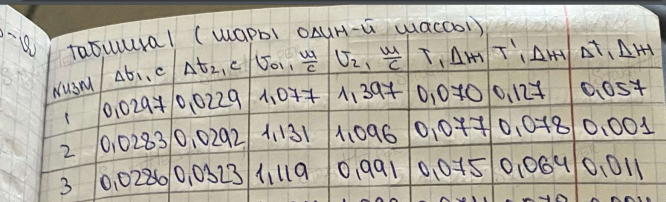 Таблица 1 (шары один-й массы)
№изм Δt₁, с Δt₂, с υ₀₁, м/с υ₂, м/с T, Дж T', Дж ΔT, Дж
1 0,0297 0,0229 1,077 1,397 0,070 0,127 0,057
2 0,0283 0,0292 1,131 1,096 0,077 0,078 0,001
3 0,0286 0,0323 1,119 0,991 0,075 0,064 0,011